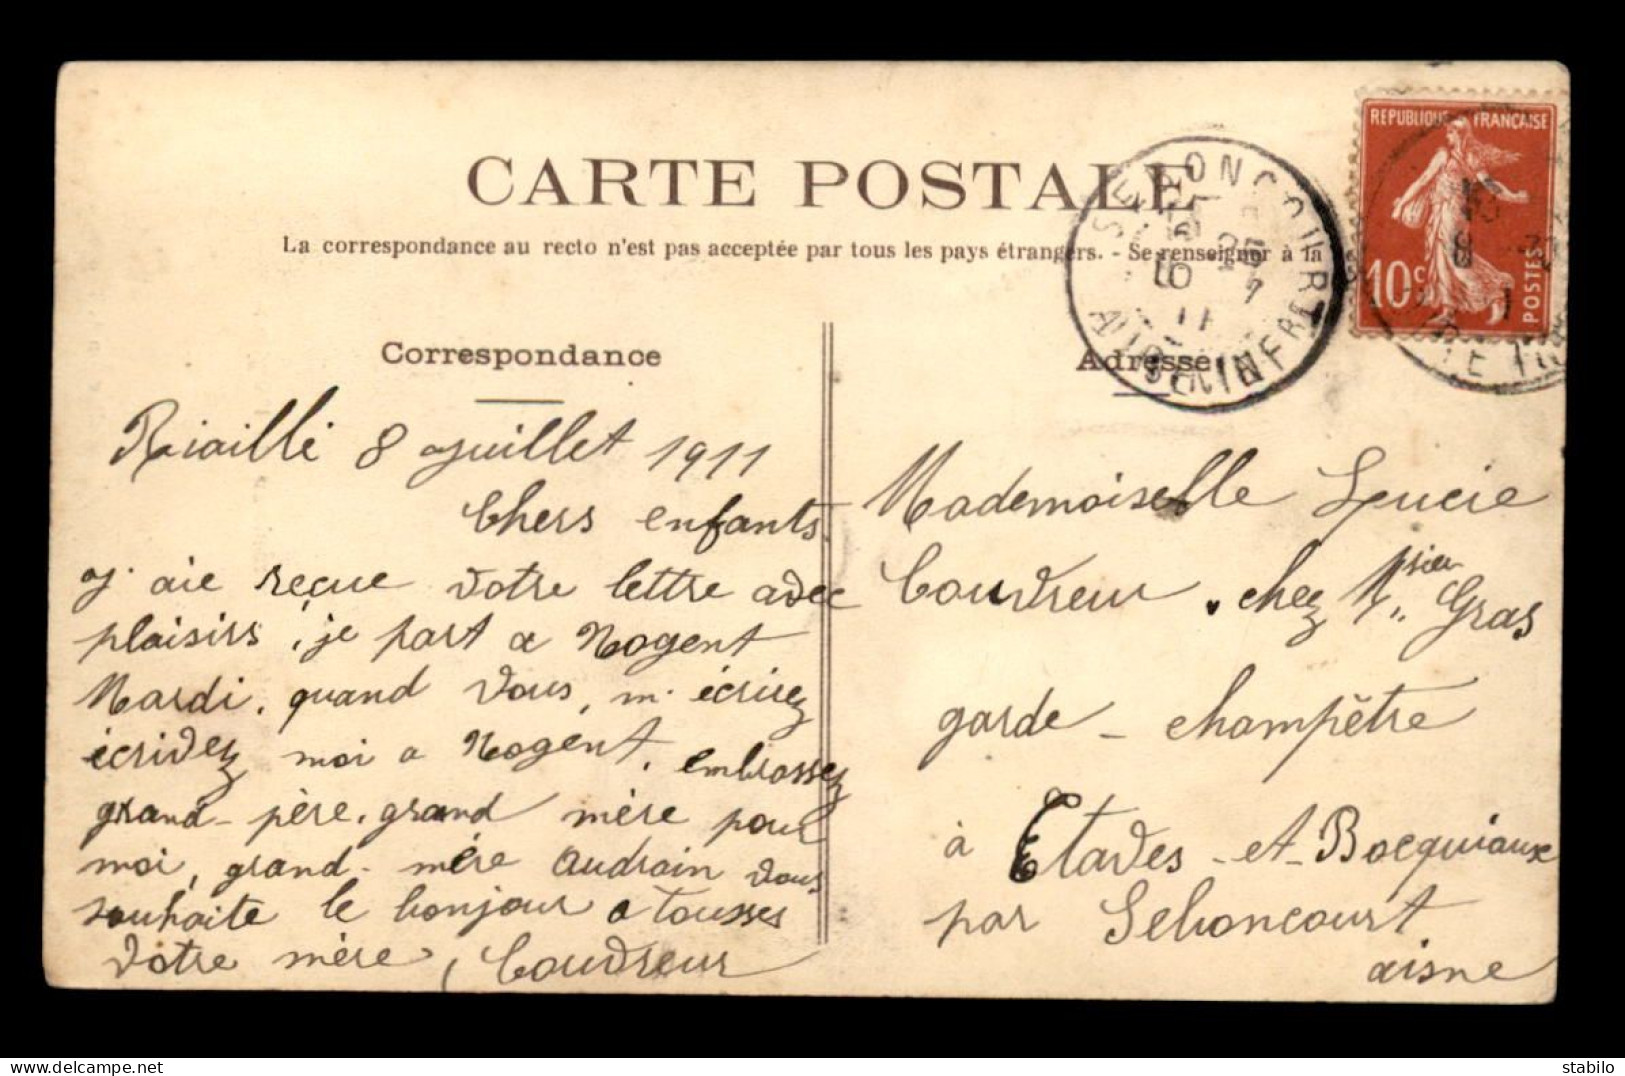 CARTE POSTALE
La correspondance au recto n'est pas acceptée par tous les pays étrangers. - Se renseigner à la
Correspondance
Riaillé 8 Juillet 1911
Chers enfants
j. aie reçue votre lettre avec
plaisirs, je part a Nogent
Mardi. quand vous, m. écrirez
écrivez moi a Nogent. embrassez
grand-père. grand mère pour
moi, grand-mère Audrain vous
souhaite le bonjour a tousses
votre mère, Coudreur
Adresse
Mademoiselle Lucie
Coudreur. chez Msieu Gras
garde-champêtre
à Etaves-et-Bocquiaux
par Seboncourt
aisne
SEBONCOURT
AISNE
REPUBLIQUE FRANÇAISE
10c
POSTES
delcampe.net
stabilo